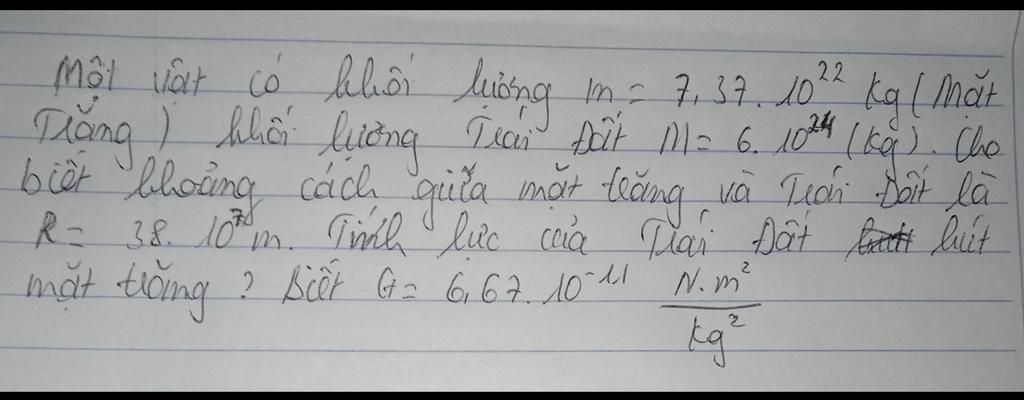 Một vật có khối lượng m = 7,37.10²² kg (Mặt
Trăng) khối lượng Trái Đất M = 6.10²⁴ (kg). Cho
biết khoảng cách giữa mặt trăng và Trái Đất là
R = 38.10⁷m. Tính lực của Trái Đất hút
mặt trăng? Biết G = 6,67.10⁻¹¹ N.m²/kg²